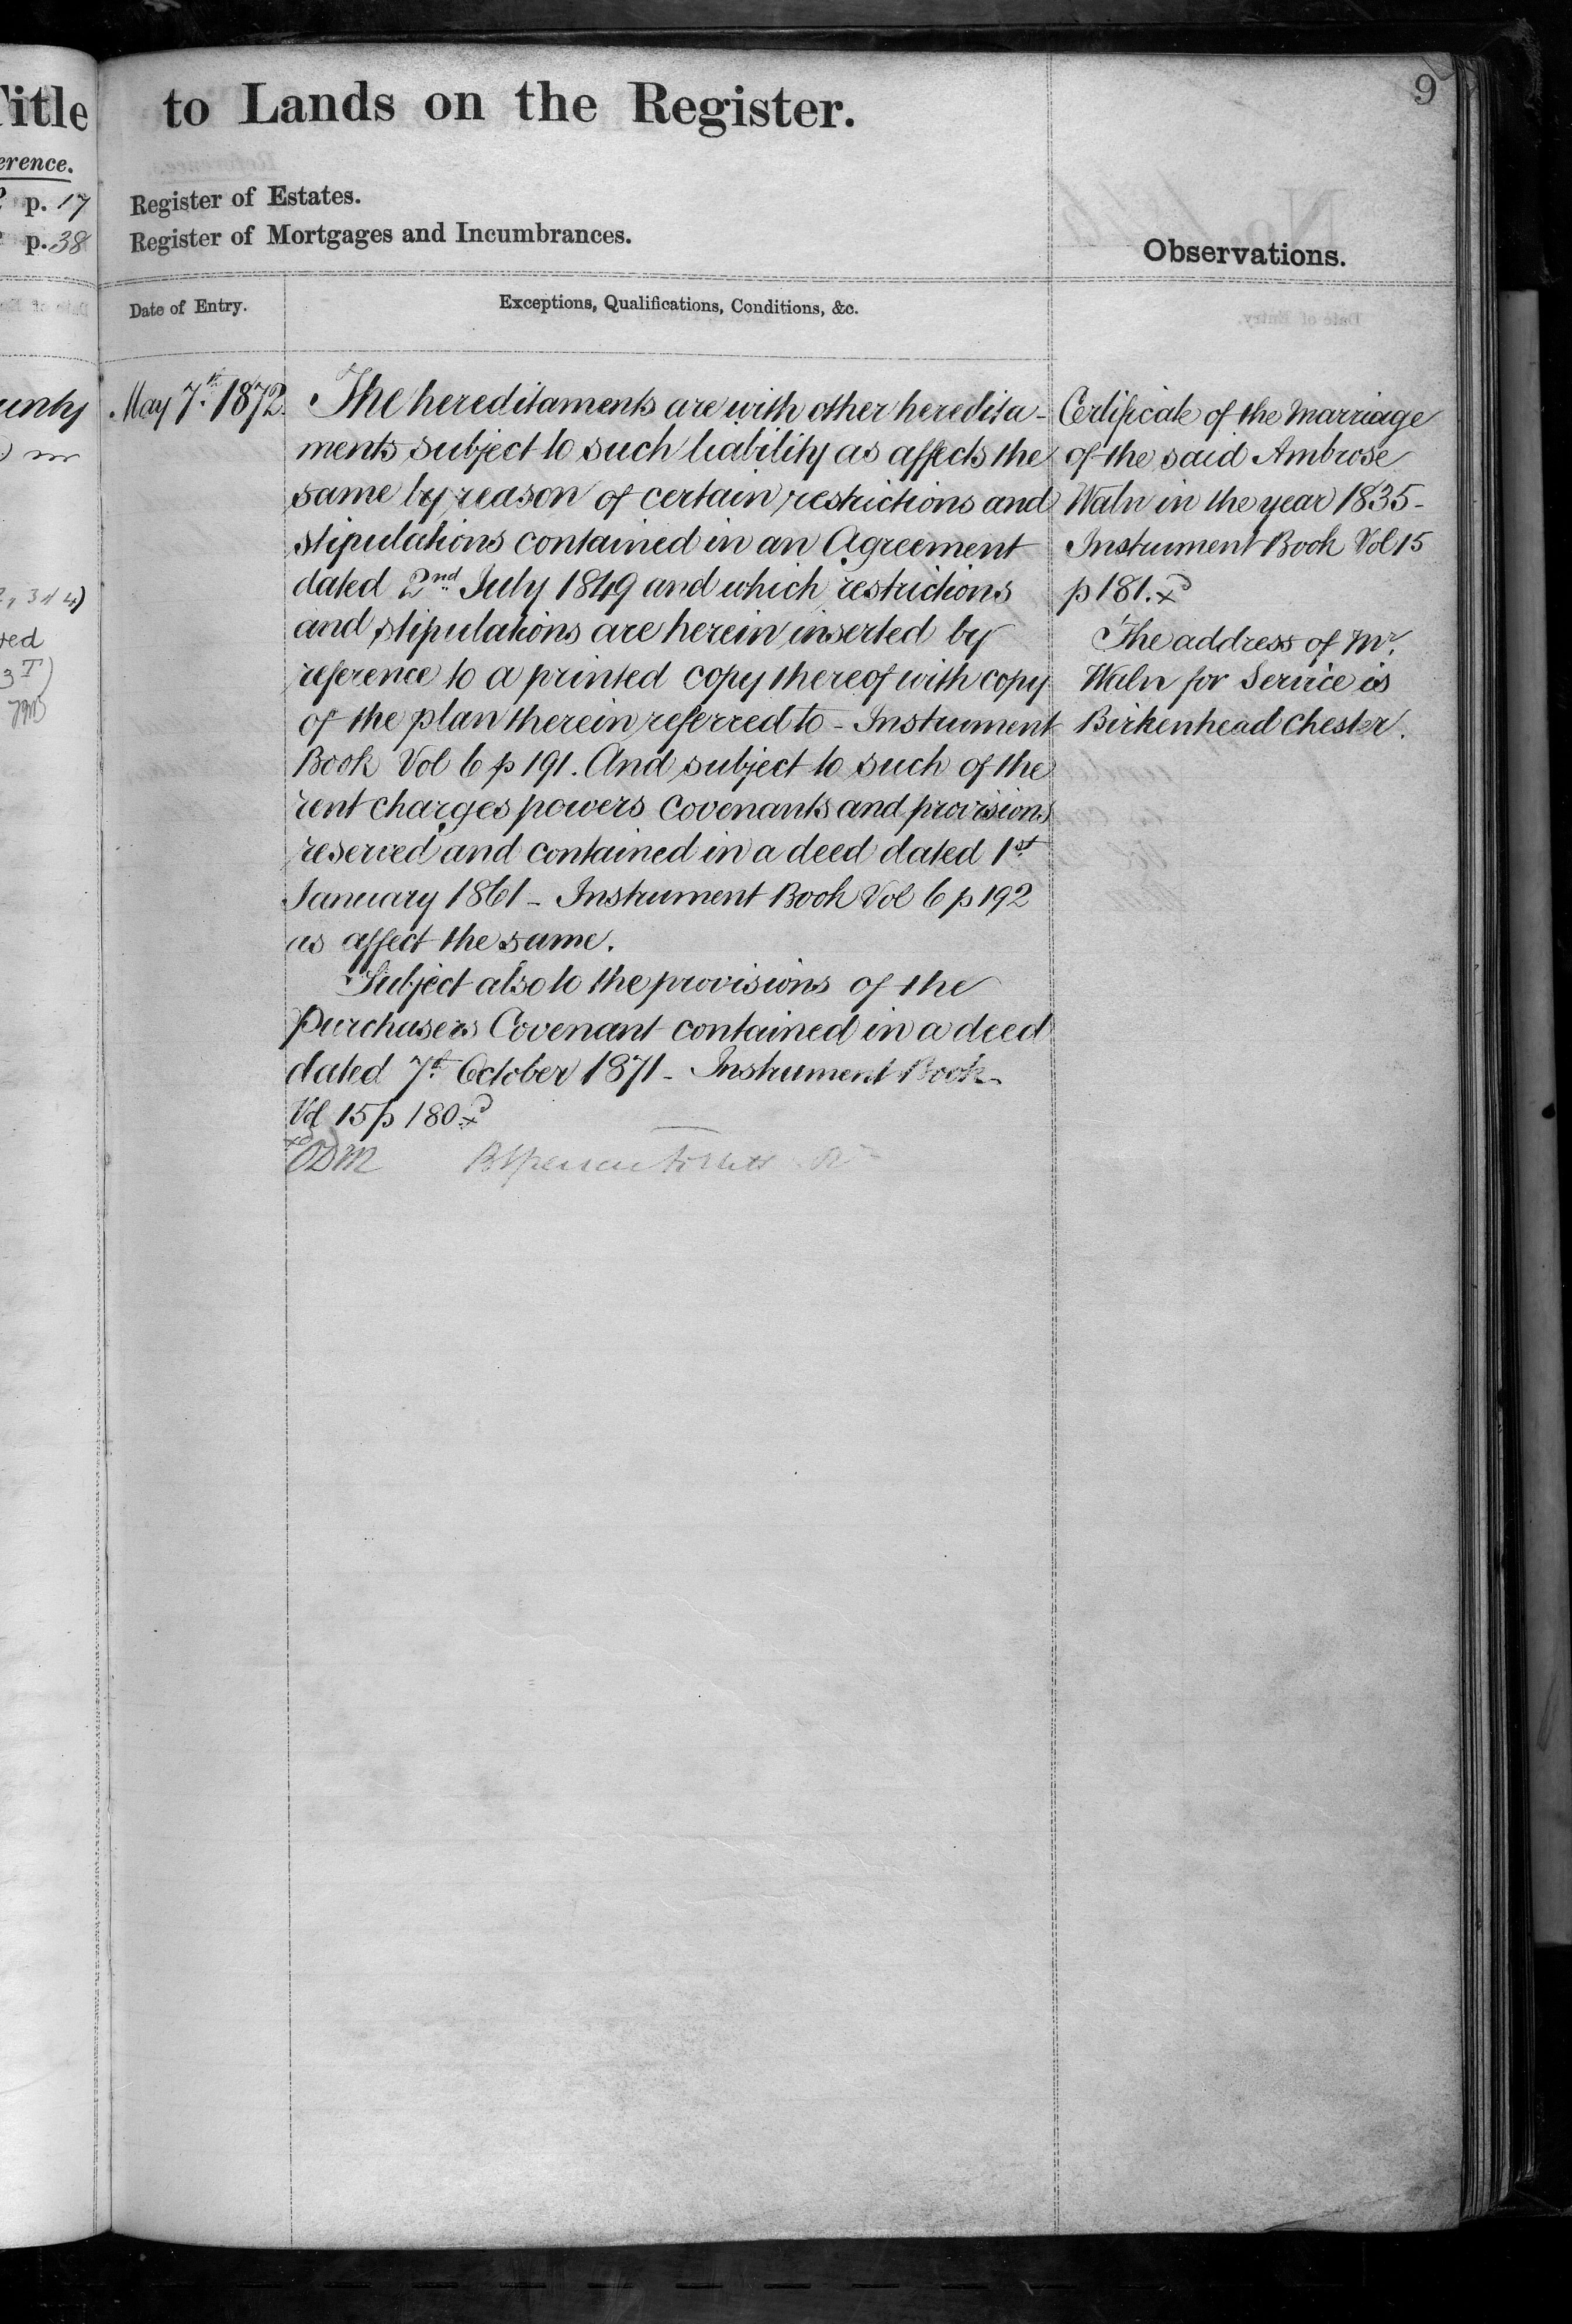 Title to Lands on the Register.
9
erence.
p. 17
p. 38
Register of Estates.
Register of Mortgages and Incumbrances.
Observations.
Date of Entry.
Exceptions, Qualifications, Conditions, &c.
May 7th. 1872.
The hereditaments are with other heredita-
ments subject to such liability as affects the
same by reason of certain restrictions and
stipulations contained in an Agreement
dated 2nd July 1849 and which restrictions
and stipulations are herein inserted by
reference to a printed copy thereof with copy
of the plan therein referred to - Instrument
Book Vol 6 p 191. And subject to such of the
rent charges powers covenants and provisions
reserved and contained in a deed dated 1st
January 1861 - Instrument Book Vol 6 p 192
as affect the same.
Subject also to the provisions of the
Purchasers Covenant contained in a deed
dated 7th October 1871 - Instrument Book
Vol 15 p 180
Certificate of the Marriage
of the said Ambrose
Waln in the year 1835 -
Instrument Book Vol 15
p 181.
The address of Mr.
Waln for Service is
Birkenhead Chester.